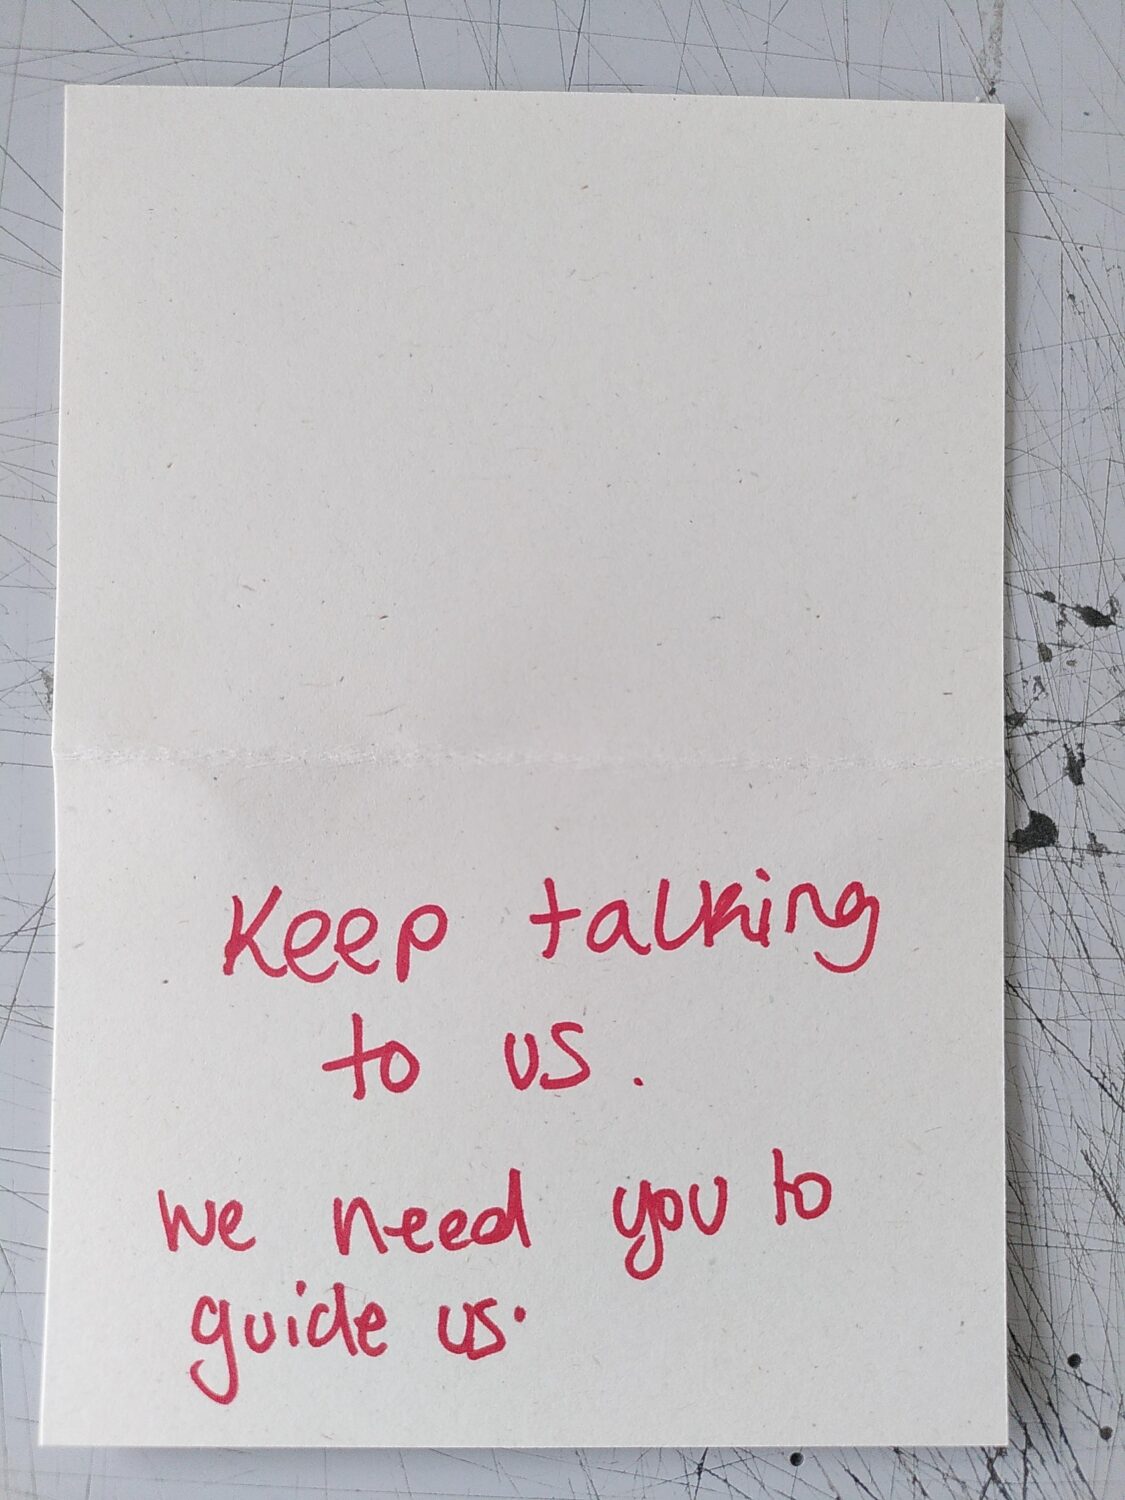 Keep talking
to us.
We need you to
guide us.